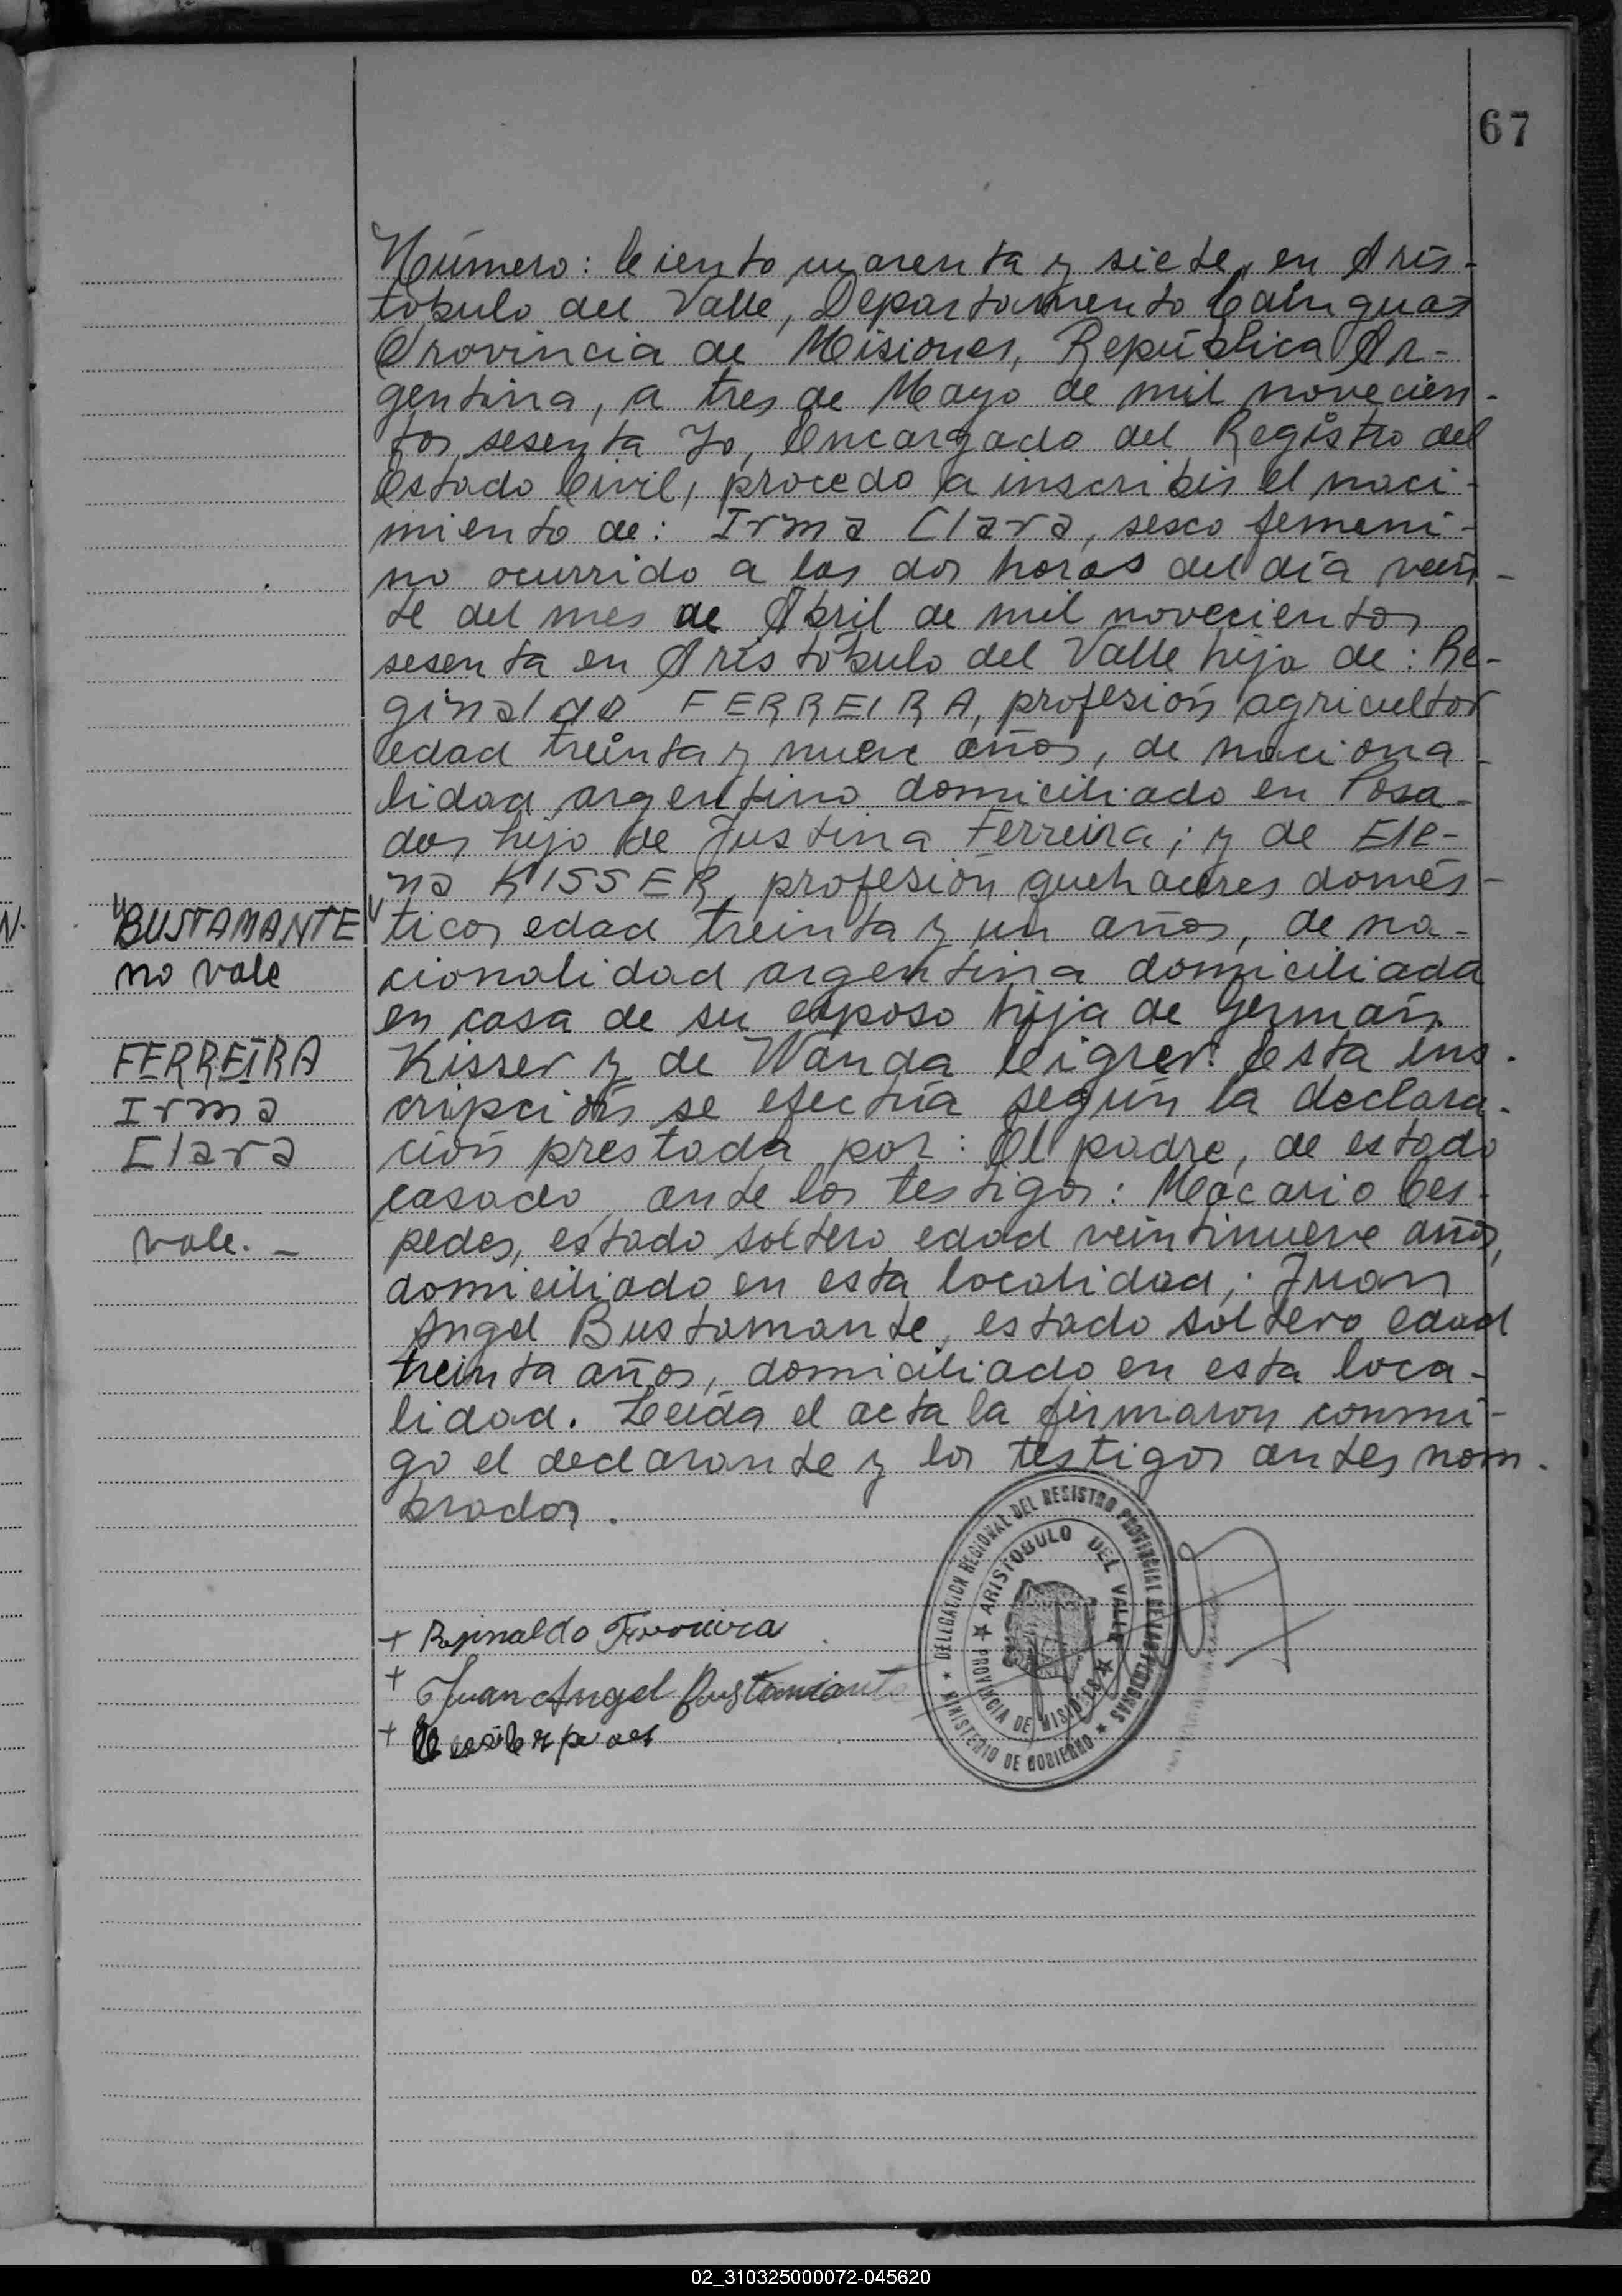 67
Número: Ciento cuarenta y siete, en Aris-
tóbulo del Valle, Departamento Cainguas
Provincia de Misiones, República Ar-
gentina, a tres de Mayo de mil novecien-
tos sesenta Yo, Encargado del Registro del
Estado Civil, procedo a inscribir el naci-
miento de: Irma Clara, sexo femeni-
no ocurrido a las dos horas del día vein-
te del mes de Abril de mil novecientos
sesenta en Aristóbulo del Valle hija de: Re-
ginaldo FERREIRA, profesión agricultor
edad treinta y nueve años, de naciona-
lidad argentino domiciliado en Posa-
das hijo de Justina Ferreira; y de Ele-
na KISSER, profesión quehaceres domés-
"BUSTAMANTE"
ticos edad treinta y un años, de na-
no vale
cionalidad argentina domiciliada
en casa de su esposo hija de Germán
FERREIRA
Kisser y de Wanda Ceigrer. Esta ins-
Irma
cripción se efectúa según la declara-
Clara
ción prestada por: El padre, de estado
casado ante los testigos: Macario Ces-
vale. _
pedes, estado soltero edad veintinueve años,
domiciliado en esta localidad; Juan
Angel Bustamante, estado soltero edad
treinta años, domiciliado en esta loca-
lidad. Leída el acta la firmaron conmi-
go el declarante y los testigos antes nom-
brados.
+ Reginaldo Ferreira
+ Juan Angel Bustamante
+
DELEGACION REGIONAL DEL REGISTRO PROVINCIAL DE LAS PERSONAS
★ MINISTERIO DE GOBIERNO ★
★ ARISTOBULO DEL VALLE ★
PROVINCIA DE MISIONES
02_310325000072-045620